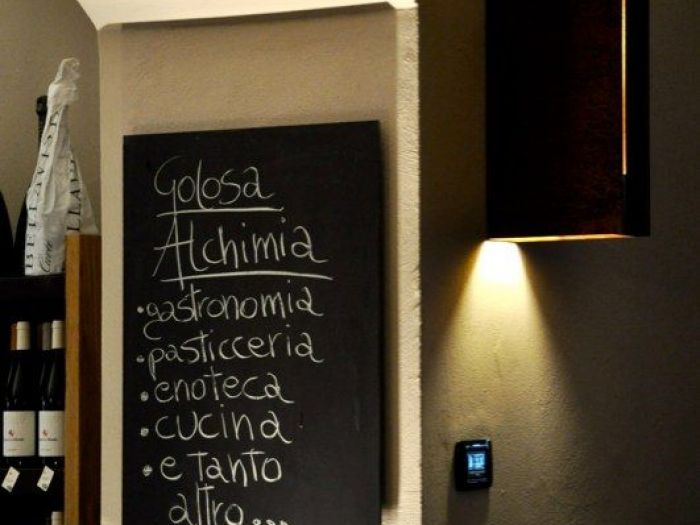 Golosa
Alchimia
• gastronomia
• pasticceria
• enoteca
• cucina
• e tanto
altro...
BELLAVISTA